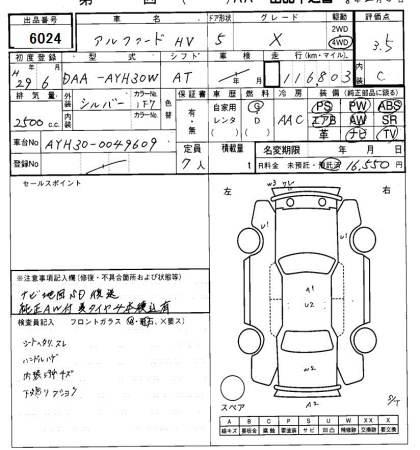 出品番号 車名 ドア形状 グレード 駆動 評価点
6024 アルファード HV 5 X 2WD 4WD 3.5
初度登録 型式 シフト 車検 走行(km・マイル) 内装
H 29年 6月 DAA-AYH30W AT 年 月 116,803 C
排気量 外装 シルバー カラーNo. 1F7 色替 保証書 車歴 燃料 冷房 装備(純正部品に限る)
2500 c.c. 内装 カラーNo. 有・無 自家用 レンタ ( ) G D ( ) AAC PS PW ABS
エアB AW SR
革 ナビ TV
車台No AYH30-0049609 定員 積載量 名変期限 年 月 日
登録No 7人 t R料金 未預託・預託済 16,550円
セールスポイント
左 右
※注意事項記入欄(修復・不具合箇所および状態等)
ナビ地図SD後送
純正AW付夏タイヤ4本積込有
検査員記入 フロントガラス(
シートヘタリ、スレ
ハンドルハゲ
内張うすキズ
W3
U1
U1
A1
U2
W2
A2
スペア
A B C P S U W X XX X
線キズ 要板金 腐蝕 要塗装 サビ 凹凸 補修跡 交換跡 要交換